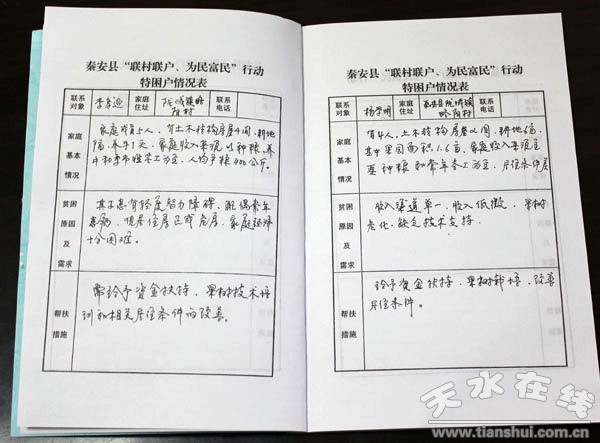 秦安县“联村联户、为民富民”行动
特困户情况表
联系对象 李 家庭住址 陇城镇略阳村 联系电话
家庭基本情况
家庭成员 人,有土木结构房屋4间,耕地
收入来源以种粮、养
为主,人均产粮400公斤。
贫困原因及需求
其子患有轻度智力障碍,配偶常年
患病,现居住房已成危房,家庭经济
十分困难。
帮扶措施
需给予资金扶持,果树技术培
训和相关居住条件的改善。
秦安县“联村联户、为民富民”行动
特困户情况表
联系对象 杨学明 家庭住址 秦安县陇城镇略阳村 联系电话
家庭基本情况
有4人,土木结构房屋 间,耕地6亩,
其中果园面积1.6亩,家庭收入来源主
要种粮和常年务工为主,居住条件差
贫困原因及需求
收入渠道单一,收入低微,果树
老化,缺乏技术支持
帮扶措施
给予资金扶持,果树 培,改善
居住条件。
天水在线
www.tianshui.com.cn